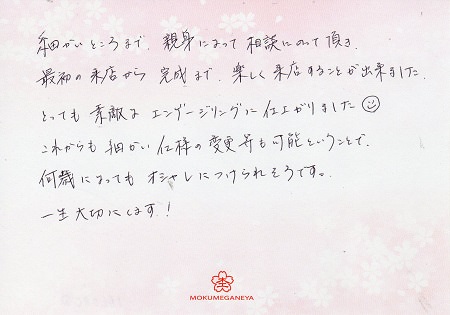 細かいところまで、親身になって相談にのって頂き、
最初の来店から完成まで、楽しく来店することが出来ました。
とっても素敵なエンゲージリングに仕上がりました☺
これからも細かい仕様の変更等も可能ということで、
何歳になってもオシャレにつけられそうです。
一生大切にします!
MOKUMEGANEYA